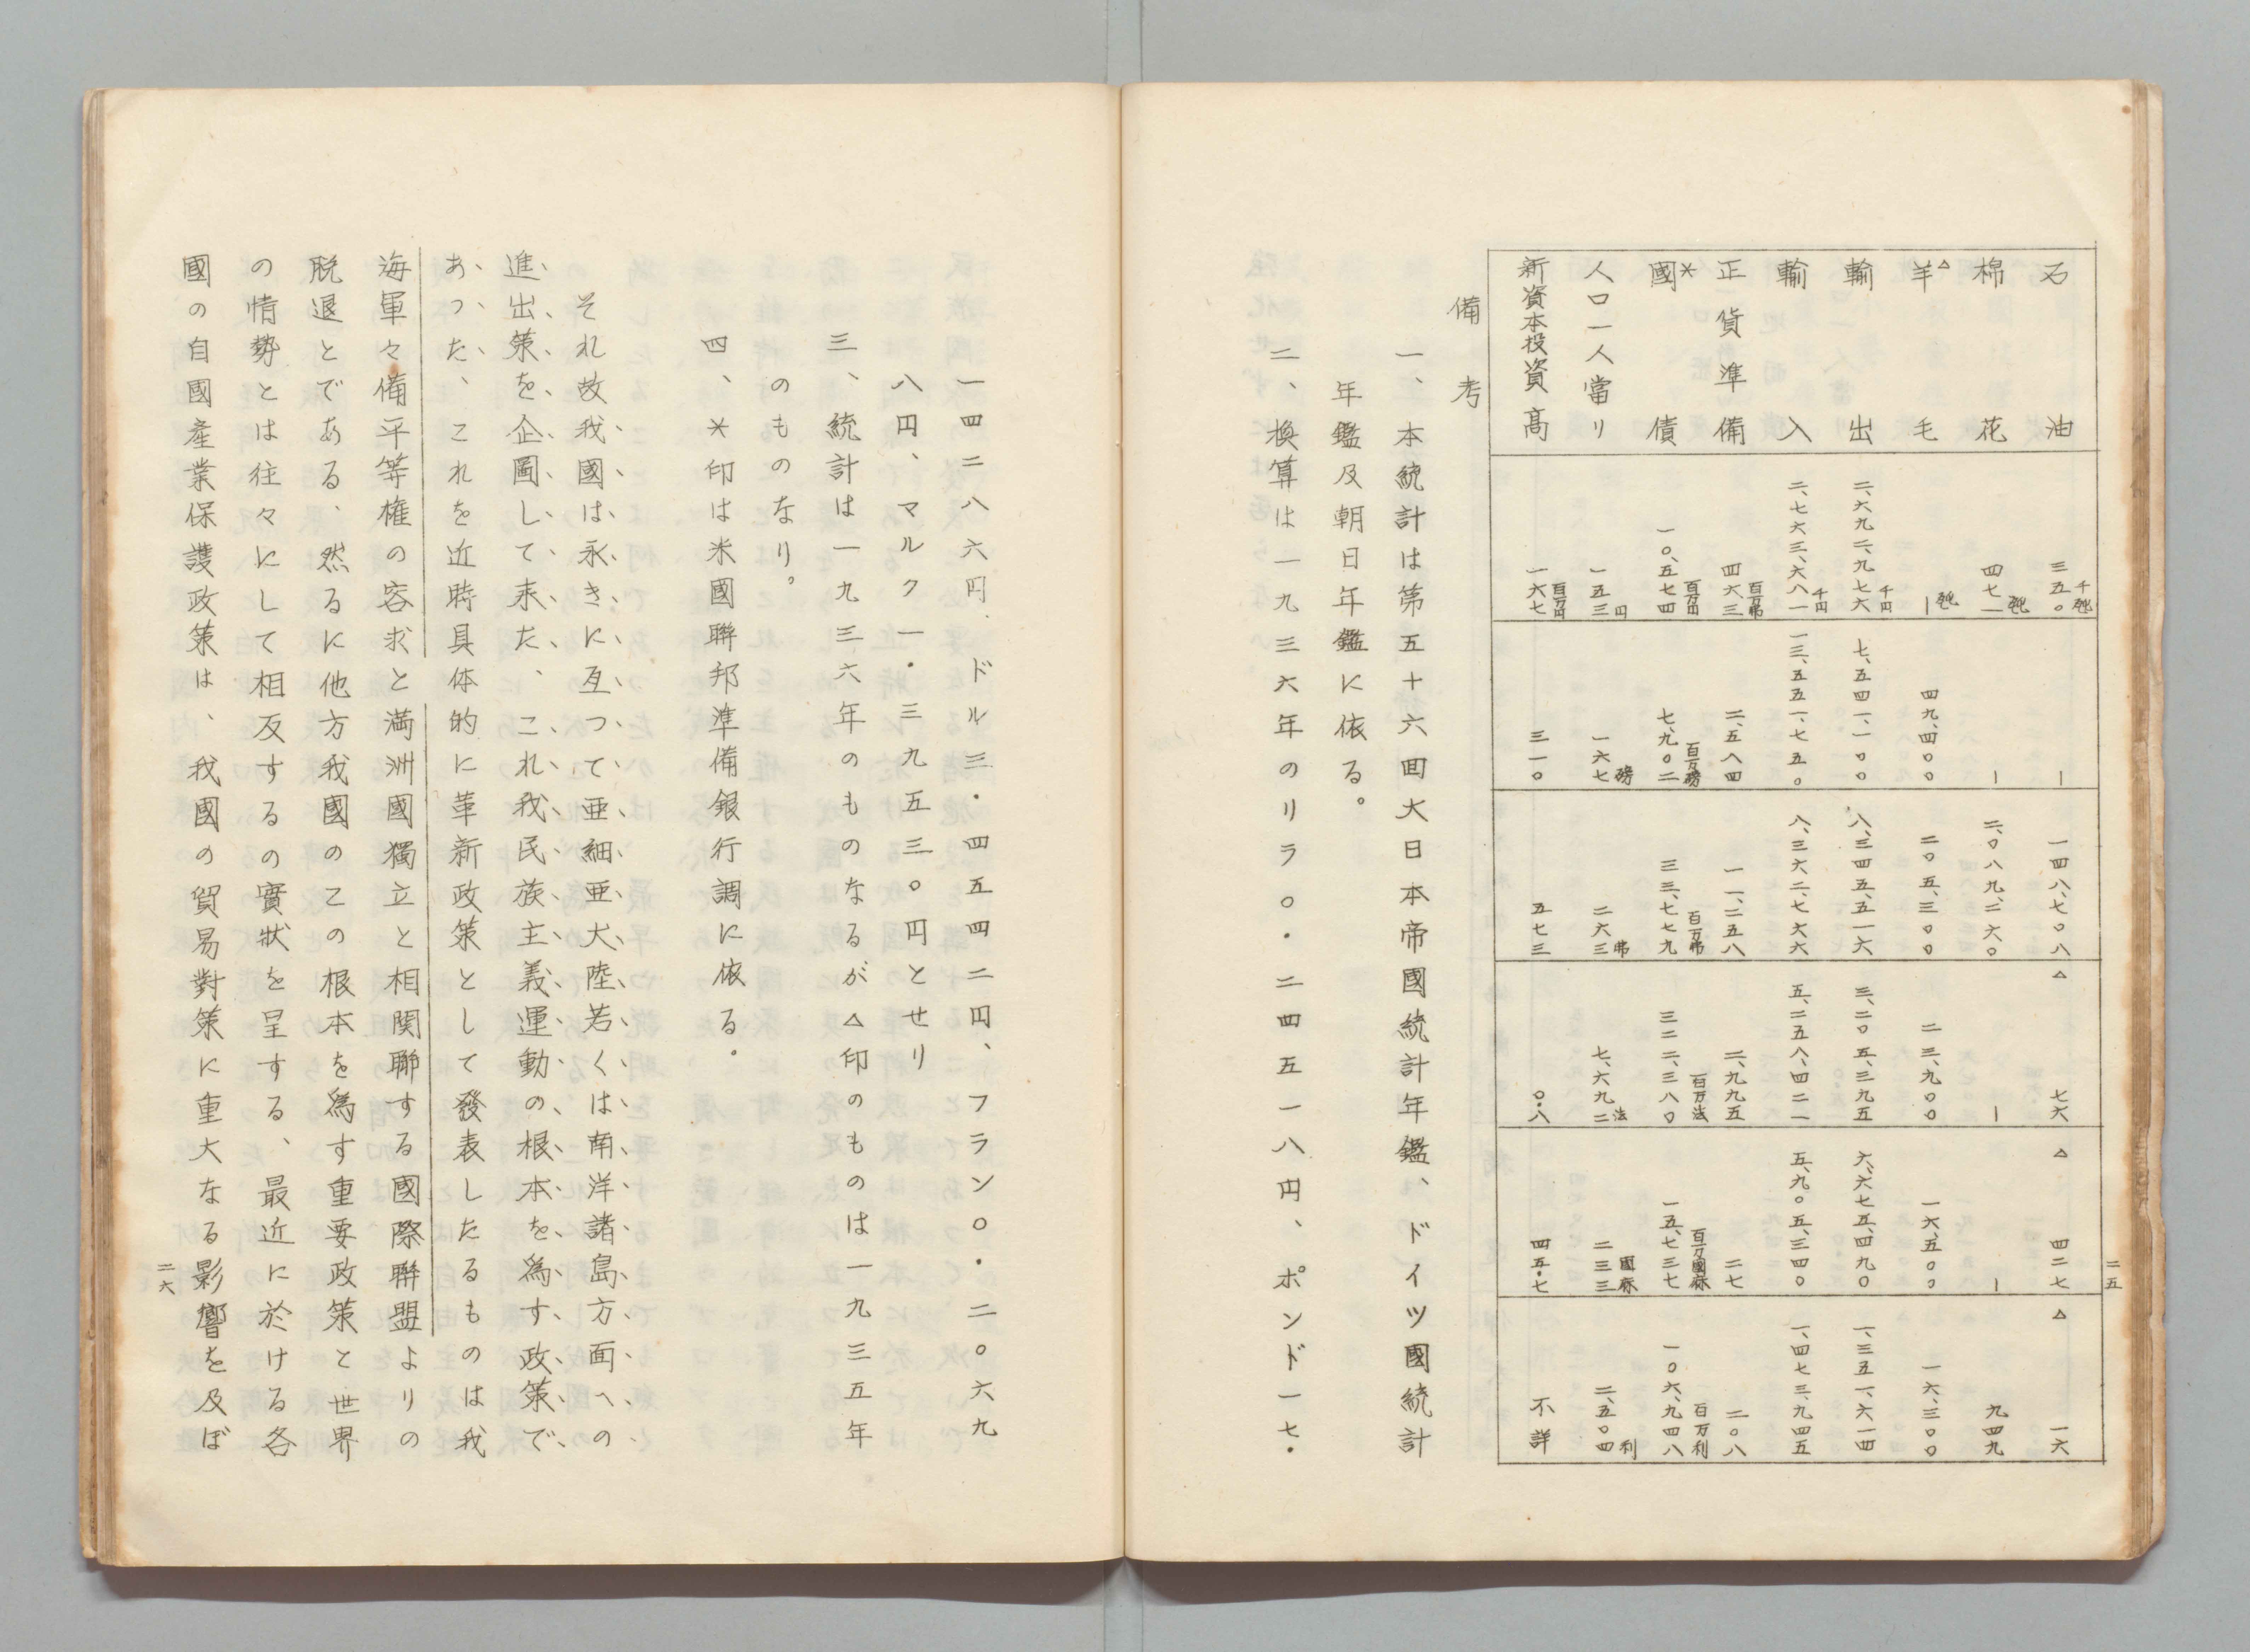 二五
石油 千瓲 三五〇 — 一四八、七〇八 △ 七六 △ 四二七 △ 一六
棉花 瓲 四七一 — 二、〇八九、二六〇 — — 九四九
△羊毛 瓲 — 四九、四〇〇 二〇五、三〇〇 二三、九〇〇 一六、五〇〇 一六、三〇〇
輸出 千円 二、六九二、九七六 七、五四一、一〇〇 八、三四五、五一六 三、二〇五、三九五 六、六七五、四九〇 一、三五一、六一四
輸入 千円 二、七六三、六八一 一三、五五一、七五〇 八、三六二、七六六 五、二五八、四二一 五、九〇五、三四〇 一、四七三、九四五
正貨準備 百万弗 四六三 二、五八四 一一、二五八 二、九九五 二七 二〇八
*國債 百万円 一〇、五七四 百万磅 七、九〇二 百万弗 三三、七七九 百万法 三二二、三八〇 百万國麻 一五、七三七 百万利 一〇六、九四八
人口一人當リ 一五三円 一六七磅 二六三弗 七、六九二法 二三三國麻 二、五〇四利
新資本投資高 百万円 一六七 三一〇 五七三 〇・八 四五・七 不詳
備考
一、本統計は第五十六囬大日本帝國統計年鑑、ドイツ國統計
年鑑及朝日年鑑に依る。
二、換算は一九三六年のリラ〇・二四五一八円、ポンド一七・
一四二八六円、ドル三・四五四二円、フラン〇・二〇六九
八円、マルク一・三九五三〇円とせり
三、統計は一九三六年のものなるが△印のものは一九三五年
のものなり。
四、*印は米國聯邦準備銀行調に依る。
それ故我國は永きに亙つて亜細亜大陸若くは南洋諸島方面への
進出策を企圖して来た、これ我民族主義運動の根本を為す政策で
あつた、これを近時具体的に革新政策として發表したるものは我
海軍々備平等権の容求と満洲國獨立と相関聯する國際聯盟よりの
脱退とである、然るに他方我國のこの根本を為す重要政策と世界
の情勢とは往々にして相反するの實狀を呈する、最近に於ける各
國の自國産業保護政策は、我國の貿易對策に重大なる影響を及ぼ
二六